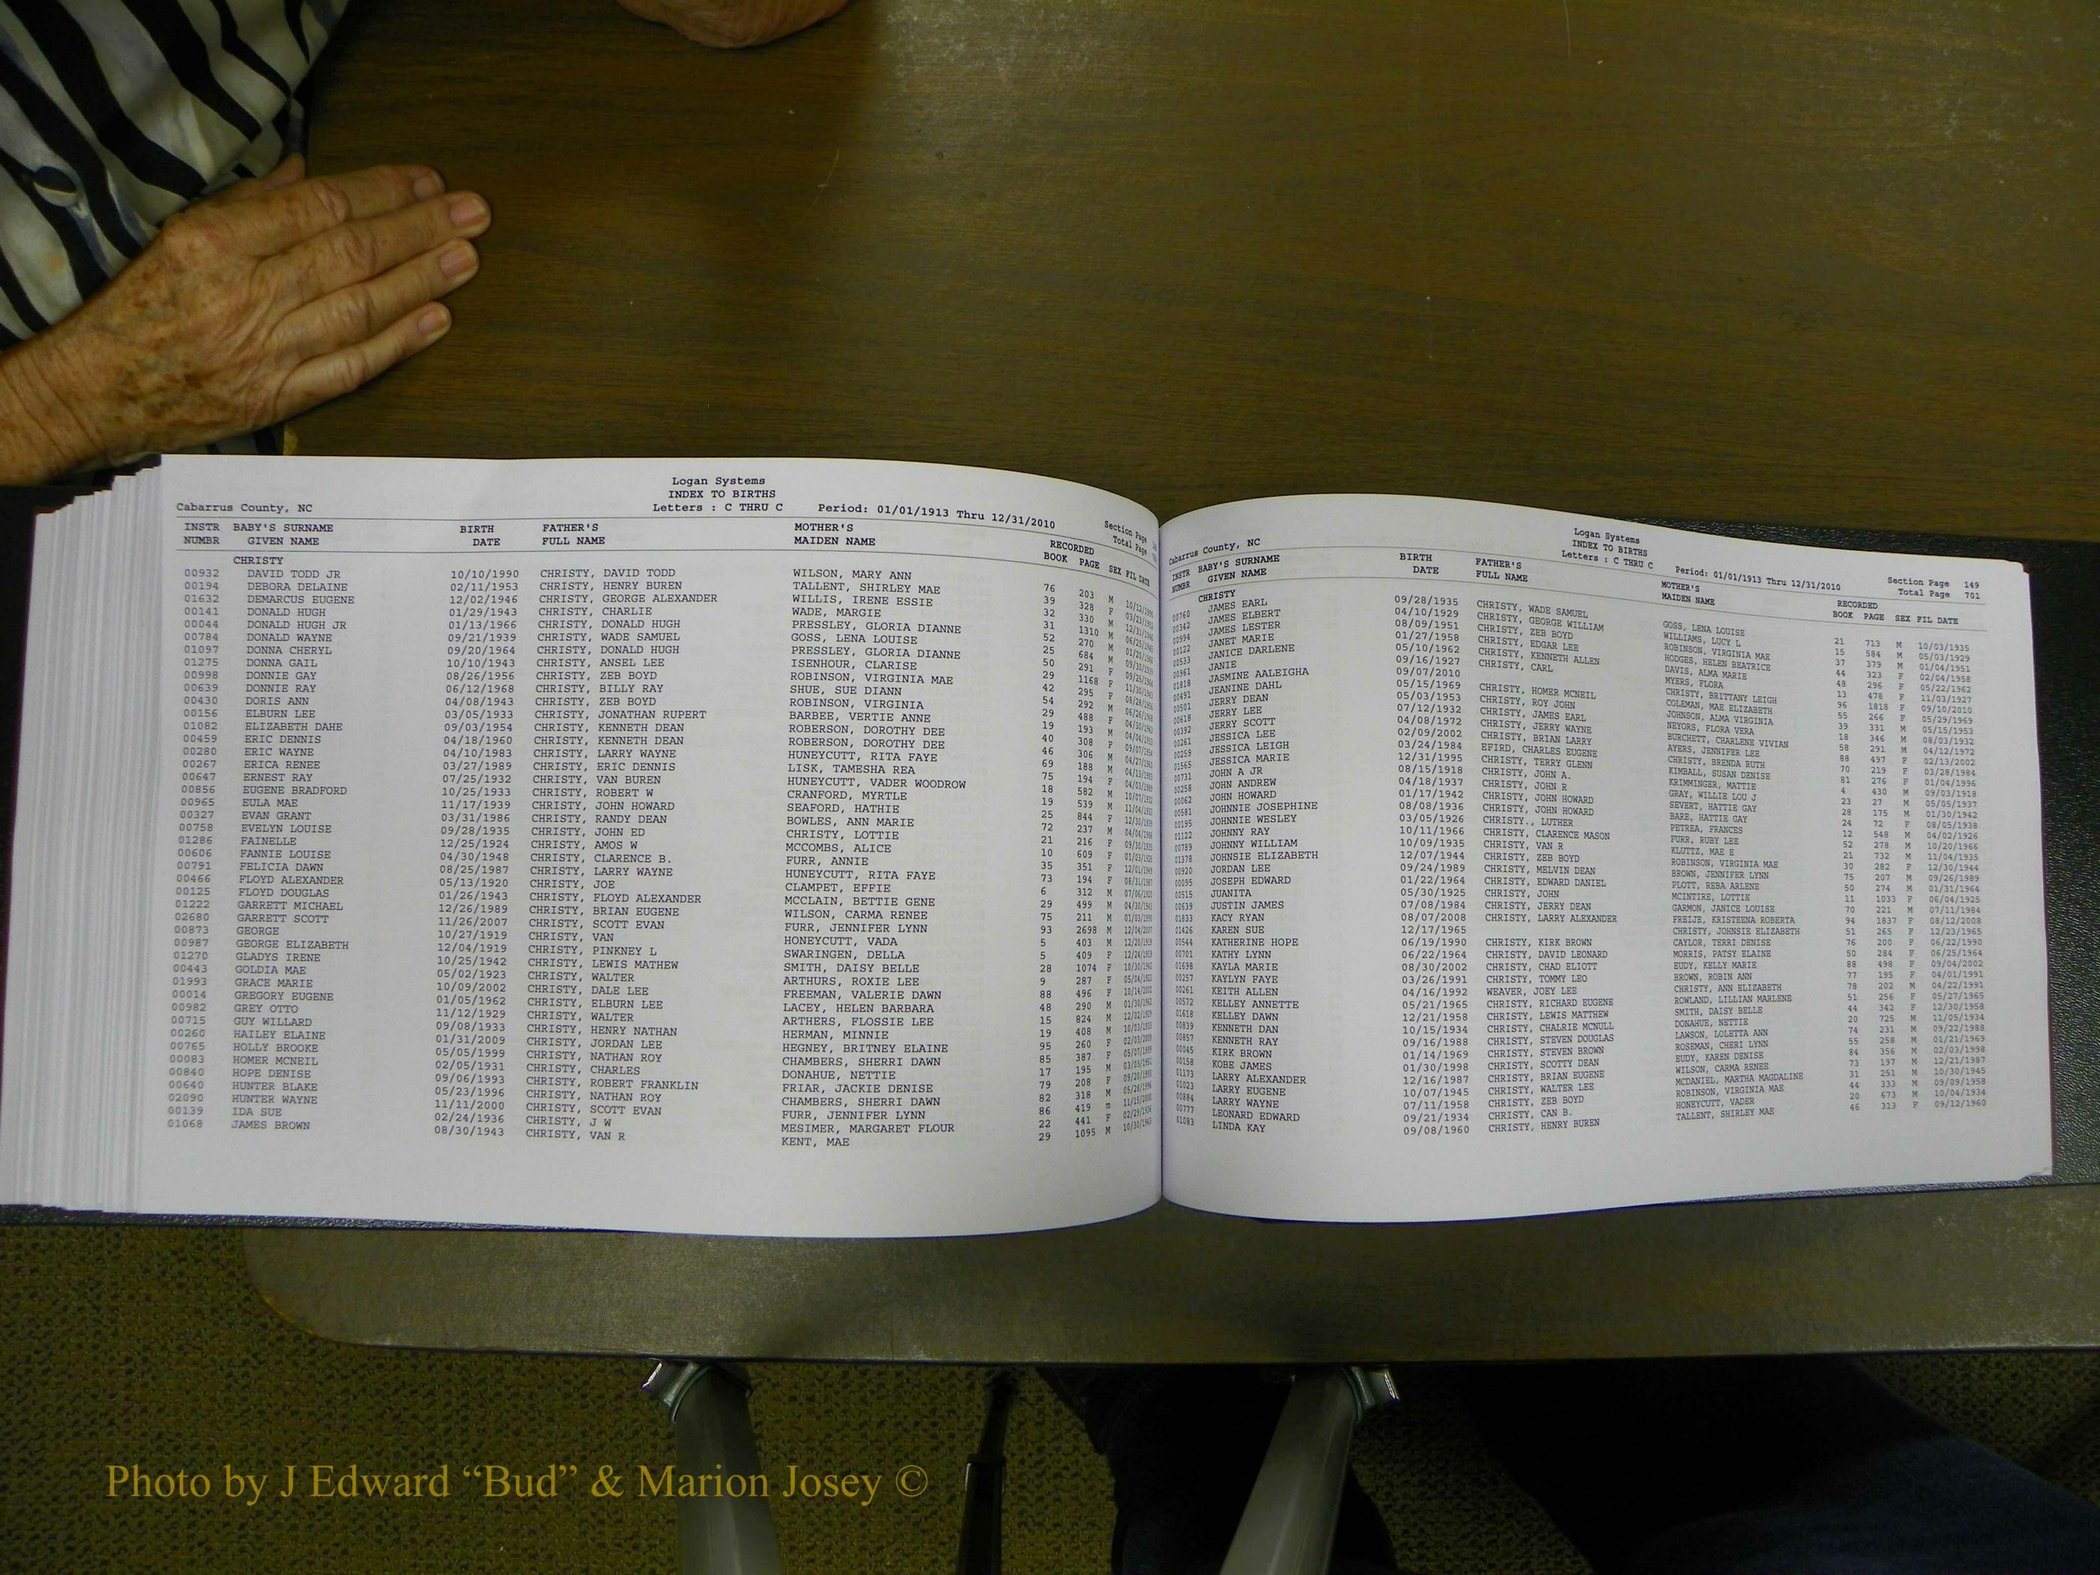 Logan Systems
INDEX TO BIRTHS
Cabarrus County, NC Letters : C THRU C Period: 01/01/1913 Thru 12/31/2010 Section Page
Total Page
INSTR BABY'S SURNAME BIRTH FATHER'S MOTHER'S RECORDED
NUMBR GIVEN NAME DATE FULL NAME MAIDEN NAME BOOK PAGE SEX FIL DATE
CHRISTY
00932 DAVID TODD JR 10/10/1990 CHRISTY, DAVID TODD WILSON, MARY ANN 76 203 M
00194 DEBORA DELAINE 02/11/1953 CHRISTY, HENRY BUREN TALLENT, SHIRLEY MAE 39 328 F
01632 DEMARCUS EUGENE 12/02/1946 CHRISTY, GEORGE ALEXANDER WILLIS, IRENE ESSIE 32 330 M
00141 DONALD HUGH 01/29/1943 CHRISTY, CHARLIE WADE, MARGIE 31 1310 M
00044 DONALD HUGH JR 01/13/1966 CHRISTY, DONALD HUGH PRESSLEY, GLORIA DIANNE 52 270 M
00784 DONALD WAYNE 09/21/1939 CHRISTY, WADE SAMUEL GOSS, LENA LOUISE 25 684 M
01097 DONNA CHERYL 09/20/1964 CHRISTY, DONALD HUGH PRESSLEY, GLORIA DIANNE 50 291 F
01275 DONNA GAIL 10/10/1943 CHRISTY, ANSEL LEE ISENHOUR, CLARISE 29 1168 F
00998 DONNIE GAY 08/26/1956 CHRISTY, ZEB BOYD ROBINSON, VIRGINIA MAE 42 295 F
00639 DONNIE RAY 06/12/1968 CHRISTY, BILLY RAY SHUE, SUE DIANN 54 292 M
00430 DORIS ANN 04/08/1943 CHRISTY, ZEB BOYD ROBINSON, VIRGINIA 29 488 F
00156 ELBURN LEE 03/05/1933 CHRISTY, JONATHAN RUPERT BARBEE, VERTIE ANNE 19 193 M
01082 ELIZABETH DAHE 09/03/1954 CHRISTY, KENNETH DEAN ROBERSON, DOROTHY DEE 40 308 F
00459 ERIC DENNIS 04/18/1960 CHRISTY, KENNETH DEAN ROBERSON, DOROTHY DEE 46 306 M
00280 ERIC WAYNE 04/10/1983 CHRISTY, LARRY WAYNE HUNEYCUTT, RITA FAYE 69 188 M
00267 ERICA RENEE 03/27/1989 CHRISTY, ERIC DENNIS LISK, TAMESHA REA 75 194 F
00647 ERNEST RAY 07/25/1932 CHRISTY, VAN BUREN HUNEYCUTT, VADER WOODROW 18 582 M
00856 EUGENE BRADFORD 10/25/1933 CHRISTY, ROBERT W CRANFORD, MYRTLE 19 539 M
00965 EULA MAE 11/17/1939 CHRISTY, JOHN HOWARD SEAFORD, HATHIE 25 844 F
00327 EVAN GRANT 03/31/1986 CHRISTY, RANDY DEAN BOWLES, ANN MARIE 72 237 M
00758 EVELYN LOUISE 09/28/1935 CHRISTY, JOHN ED CHRISTY, LOTTIE 21 216 F
01286 FAINELLE 12/25/1924 CHRISTY, AMOS W MCCOMBS, ALICE 10 609 F
00606 FANNIE LOUISE 04/30/1948 CHRISTY, CLARENCE B. FURR, ANNIE 35 351 F
00791 FELICIA DAWN 08/25/1987 CHRISTY, LARRY WAYNE HUNEYCUTT, RITA FAYE 73 194 F
00466 FLOYD ALEXANDER 05/13/1920 CHRISTY, JOE CLAMPET, EFFIE 6 312 M
00125 FLOYD DOUGLAS 01/26/1943 CHRISTY, FLOYD ALEXANDER MCCLAIN, BETTIE GENE 29 499 M
01222 GARRETT MICHAEL 12/26/1989 CHRISTY, BRIAN EUGENE WILSON, CARMA RENEE 75 211 M
02680 GARRETT SCOTT 11/26/2007 CHRISTY, SCOTT EVAN FURR, JENNIFER LYNN 93 2698 M
00873 GEORGE 10/27/1919 CHRISTY, VAN HONEYCUTT, VADA 5 403 M
00987 GEORGE ELIZABETH 12/04/1919 CHRISTY, PINKNEY L SWARINGEN, DELLA 5 409 F
01270 GLADYS IRENE 10/25/1942 CHRISTY, LEWIS MATHEW SMITH, DAISY BELLE 28 1074 F
00443 GOLDIA MAE 05/02/1923 CHRISTY, WALTER ARTHURS, ROXIE LEE 9 287 F
01993 GRACE MARIE 10/09/2002 CHRISTY, DALE LEE FREEMAN, VALERIE DAWN 88 496 F
00014 GREGORY EUGENE 01/05/1962 CHRISTY, ELBURN LEE LACEY, HELEN BARBARA 48 290 M
00982 GREY OTTO 11/12/1929 CHRISTY, WALTER ARTHERS, FLOSSIE LEE 15 824 M
00715 GUY WILLARD 09/08/1933 CHRISTY, HENRY NATHAN HERMAN, MINNIE 19 408 M
00260 HAILEY ELAINE 01/31/2009 CHRISTY, JORDAN LEE HEGNEY, BRITNEY ELAINE 95 260 F
00765 HOLLY BROOKE 05/05/1999 CHRISTY, NATHAN ROY CHAMBERS, SHERRI DAWN 85 387 F
00083 HOMER MCNEIL 02/05/1931 CHRISTY, CHARLES DONAHUE, NETTIE 17 195 M
00840 HOPE DENISE 09/06/1993 CHRISTY, ROBERT FRANKLIN FRIAR, JACKIE DENISE 79 208 F
00640 HUNTER BLAKE 05/23/1996 CHRISTY, NATHAN ROY CHAMBERS, SHERRI DAWN 82 318 M
02090 HUNTER WAYNE 11/11/2000 CHRISTY, SCOTT EVAN FURR, JENNIFER LYNN 86 419 m
00139 IDA SUE 02/24/1936 CHRISTY, J W MESIMER, MARGARET FLOUR 22 441 F
01068 JAMES BROWN 08/30/1943 CHRISTY, VAN R KENT, MAE 29 1095 M
Logan Systems
INDEX TO BIRTHS
Cabarrus County, NC Letters : C THRU C Period: 01/01/1913 Thru 12/31/2010 Section Page 149
Total Page 701
INSTR BABY'S SURNAME BIRTH FATHER'S MOTHER'S RECORDED
NUMBR GIVEN NAME DATE FULL NAME MAIDEN NAME BOOK PAGE SEX FIL DATE
CHRISTY
00760 JAMES EARL 09/28/1935 CHRISTY, WADE SAMUEL GOSS, LENA LOUISE 21 713 M 10/03/1935
00342 JAMES ELBERT 04/10/1929 CHRISTY, GEORGE WILLIAM WILLIAMS, LUCY L 15 584 M 05/03/1929
00994 JAMES LESTER 08/09/1951 CHRISTY, ZEB BOYD ROBINSON, VIRGINIA MAE 37 379 M 01/04/1951
00122 JANET MARIE 01/27/1958 CHRISTY, EDGAR LEE HODGES, HELEN BEATRICE 44 323 F 02/04/1958
00533 JANICE DARLENE 05/10/1962 CHRISTY, KENNETH ALLEN DAVIS, ALMA MARIE 48 296 F 05/22/1962
00961 JANIE 09/16/1927 CHRISTY, CARL MYERS, FLORA 13 478 F 11/03/1927
01818 JASMINE AALEIGHA 09/07/2010 CHRISTY, BRITTANY LEIGH 96 1818 F 09/10/2010
00491 JEANINE DAHL 05/15/1969 CHRISTY, HOMER MCNEIL COLEMAN, MAE ELIZABETH 55 266 F 05/29/1969
00501 JERRY DEAN 05/03/1953 CHRISTY, ROY JOHN JOHNSON, ALMA VIRGINIA 39 331 M 05/15/1953
00618 JERRY LEE 07/12/1932 CHRISTY, JAMES EARL NEYORS, FLORA VERA 18 346 M 08/03/1932
00392 JERRY SCOTT 04/08/1972 CHRISTY, JERRY WAYNE BURCHETT, CHARLENE VIVIAN 58 291 M 04/12/1972
00261 JESSICA LEE 02/09/2002 CHRISTY, BRIAN LARRY AYERS, JENNIFER LEE 88 497 F 02/13/2002
00259 JESSICA LEIGH 03/24/1984 EFIRD, CHARLES EUGENE CHRISTY, BRENDA RUTH 70 219 F 03/28/1984
01565 JESSICA MARIE 12/31/1995 CHRISTY, TERRY GLENN KIMBALL, SUSAN DENISE 81 276 F 01/04/1996
00731 JOHN A JR 08/15/1918 CHRISTY, JOHN A. KRIMMINGER, MATTIE 4 430 M 09/03/1918
00258 JOHN ANDREW 04/18/1937 CHRISTY, JOHN R GRAY, WILLIE LOU J 23 27 M 05/05/1937
00062 JOHN HOWARD 01/17/1942 CHRISTY, JOHN HOWARD SEVERT, HATTIE GAY 28 175 M 01/30/1942
00581 JOHNNIE JOSEPHINE 08/08/1936 CHRISTY, JOHN HOWARD BARE, HATTIE GAY 24 72 F 08/05/1938
00195 JOHNNIE WESLEY 03/05/1926 CHRISTY., LUTHER PETREA, FRANCES 12 548 M 04/02/1926
01122 JOHNNY RAY 10/11/1966 CHRISTY, CLARENCE MASON FURR, RUBY LEE 52 278 M 10/20/1966
00789 JOHNNY WILLIAM 10/09/1935 CHRISTY, VAN R KLUTTZ, MAE E 21 732 M 11/04/1935
01378 JOHNSIE ELIZABETH 12/07/1944 CHRISTY, ZEB BOYD ROBINSON, VIRGINIA MAE 30 282 F 12/30/1944
00920 JORDAN LEE 09/24/1989 CHRISTY, MELVIN DEAN BROWN, JENNIFER LYNN 75 207 M 09/26/1989
00095 JOSEPH EDWARD 01/22/1964 CHRISTY, EDWARD DANIEL PLOTT, REBA ARLENE 50 274 M 01/31/1964
00515 JUANITA 05/30/1925 CHRISTY, JOHN MCINTIRE, LOTTIE 11 1033 F 06/04/1925
00639 JUSTIN JAMES 07/08/1984 CHRISTY, JERRY DEAN GARMON, JANICE LOUISE 70 221 M 07/11/1984
01833 KACY RYAN 08/07/2008 CHRISTY, LARRY ALEXANDER FREIJE, KRISTEENA ROBERTA 94 1837 F 08/12/2008
01426 KAREN SUE 12/17/1965 CHRISTY, JOHNSIE ELIZABETH 51 265 F 12/23/1965
00544 KATHERINE HOPE 06/19/1990 CHRISTY, KIRK BROWN CAYLOR, TERRI DENISE 76 200 F 06/22/1990
00701 KATHY LYNN 06/22/1964 CHRISTY, DAVID LEONARD MORRIS, PATSY ELAINE 50 284 F 06/25/1964
01698 KAYLA MARIE 08/30/2002 CHRISTY, CHAD ELIOTT EUDY, KELLY MARIE 88 498 F 09/04/2002
00257 KAYLYN FAYE 03/26/1991 CHRISTY, TOMMY LEO BROWN, ROBIN ANN 77 195 F 04/01/1991
00261 KEITH ALLEN 04/16/1992 WEAVER, JOEY LEE CHRISTY, ANN ELIZABETH 78 202 M 04/22/1991
00572 KELLEY ANNETTE 05/21/1965 CHRISTY, RICHARD EUGENE ROWLAND, LILLIAN MARLENE 51 256 F 05/27/1965
01618 KELLEY DAWN 12/21/1958 CHRISTY, LEWIS MATTHEW SMITH, DAISY BELLE 44 342 F 12/30/1958
00839 KENNETH DAN 10/15/1934 CHRISTY, CHALRIE MCNULL DONAHUE, NETTIE 20 725 M 11/05/1934
00857 KENNETH RAY 09/16/1988 CHRISTY, STEVEN DOUGLAS LAWSON, LOLETTA ANN 74 231 M 09/22/1988
00045 KIRK BROWN 01/14/1969 CHRISTY, STEVEN BROWN ROSEMAN, CHERI LYNN 55 258 M 01/21/1969
00158 KOBE JAMES 01/30/1998 CHRISTY, SCOTTY DEAN EUDY, KAREN DENISE 84 356 M 02/03/1998
01173 LARRY ALEXANDER 12/16/1987 CHRISTY, BRIAN EUGENE WILSON, CARMA RENEE 73 197 M 12/21/1987
01023 LARRY EUGENE 10/07/1945 CHRISTY, WALTER LEE MCDANIEL, MARTHA MAGDALINE 31 251 M 10/30/1945
00884 LARRY WAYNE 07/11/1958 CHRISTY, ZEB BOYD ROBINSON, VIRGINIA MAE 44 333 M 09/09/1958
00777 LEONARD EDWARD 09/21/1934 CHRISTY, CAN B. HONEYCUTT, VADER 20 673 M 10/04/1934
01083 LINDA KAY 09/08/1960 CHRISTY, HENRY BUREN TALLENT, SHIRLEY MAE 46 313 F 09/12/1960
Photo by J Edward “Bud” & Marion Josey ©